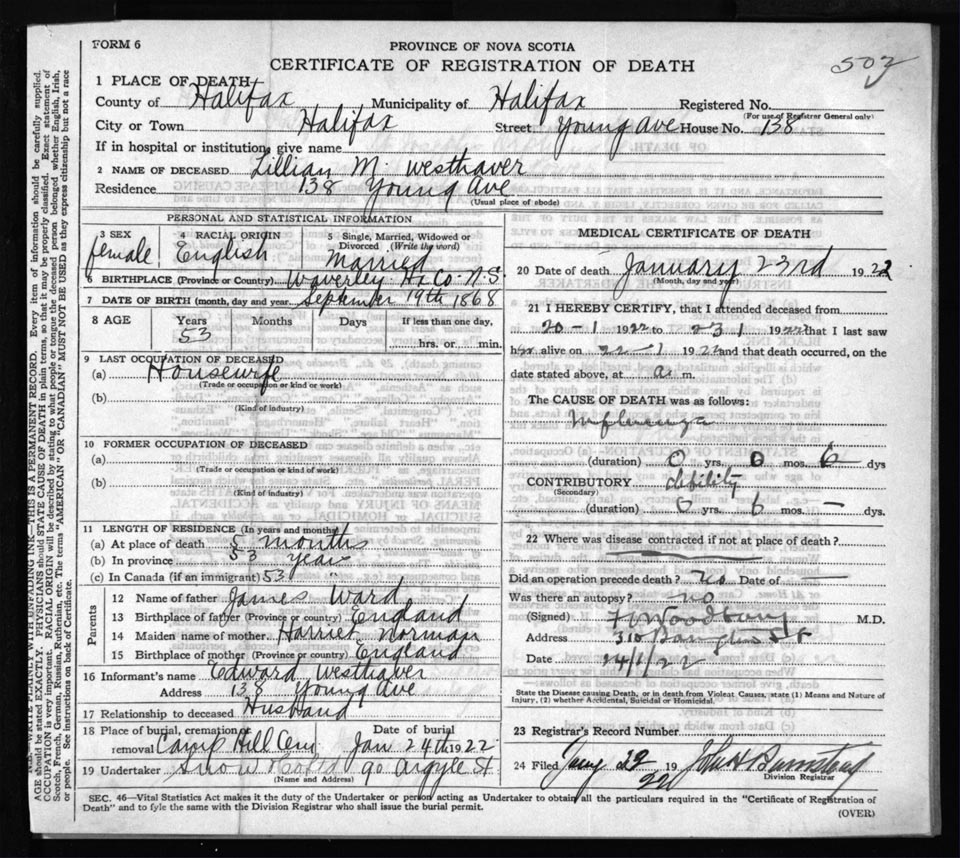 FORM 6
PROVINCE OF NOVA SCOTIA
CERTIFICATE OF REGISTRATION OF DEATH
502
1 PLACE OF DEATH
County of Halifax Municipality of Halifax Registered No.
(For use of Registrar General only)
City or Town Halifax Street Young Ave House No. 138
If in hospital or institution, give name
2 NAME OF DECEASED Lillian M. Westhaver
Residence 138 Young Ave
(Usual place of abode)
PERSONAL AND STATISTICAL INFORMATION
3 SEX 4 RACIAL ORIGIN 5 Single, Married, Widowed or Divorced (Write the word)
female English Married
6 BIRTHPLACE (Province or Country) Waverley Hx Co. N.S.
7 DATE OF BIRTH (month, day and year) September 19th 1868
8 AGE Years Months Days If less than one day,
53 hrs. or min.
9 LAST OCCUPATION OF DECEASED
(a) Housewife
(Trade or occupation or kind or work)
(b)
(Kind of industry)
10 FORMER OCCUPATION OF DECEASED
(a)
(Trade or occupation or kind or work)
(b)
(Kind of industry)
11 LENGTH OF RESIDENCE (In years and months)
(a) At place of death 5 months
(b) In province 53 year
(c) In Canada (if an immigrant) 53 "
Parents
12 Name of father James Ward
13 Birthplace of father (Province or country) England
14 Maiden name of mother Harriet Norman
15 Birthplace of mother (Province or country) England
16 Informant's name Edward Westhaver
Address 138 Young Ave
17 Relationship to deceased Husband
18 Place of burial, cremation or removal Camp Hill Cem Date of burial Jan 24th 1922
19 Undertaker Snow & Co Ltd 90 Argyle St
MEDICAL CERTIFICATE OF DEATH
20 Date of death January 23rd 1922
(Month, day and year)
21 I HEREBY CERTIFY, that I attended deceased from
20-1 1922 to 23 1 1922 that I last saw
her alive on 22 1 1922 and that death occurred, on the
date stated above, at a. m.
The CAUSE OF DEATH was as follows:
Influenza
(duration) 0 yrs. 0 mos. 6 dys
CONTRIBUTORY debility
(Secondary)
(duration) 0 yrs. 6 mos. — dys.
22 Where was disease contracted if not at place of death?
Did an operation precede death? no Date of —
Was there an autopsy? no
(Signed) F Woodbury M.D.
Address 310 St
Date 24/1/22
State the Disease causing Death, or in death from Violent Causes, state (1) Means and Nature of
Injury, (2) whether Accidental, Suicidal or Homicidal.
23 Registrar's Record Number
24 Filed Jany 29 1922 John H Barnstead
Division Registrar
SEC. 46—Vital Statistics Act makes it the duty of the Undertaker or person acting as Undertaker to obtain all the particulars required in the "Certificate of Registration of
Death" and to fyle the same with the Division Registrar who shall issue the burial permit.
(OVER)
WRITE PLAINLY WITH UNFADING INK—THIS IS A PERMANENT RECORD. Every item of information should be carefully supplied.
AGE should be stated EXACTLY. PHYSICIANS should STATE CAUSE OF DEATH in plain terms, so that it may be properly classified. Exact statement of
OCCUPATION is very important. RACIAL ORIGIN will be described by stating to what people or tongue the deceased person belonged whether English, Irish,
Scotch, French, German, Russian, Ruthenian, etc. The terms "AMERICAN" OR "CANADIAN" MUST NOT BE USED as they express citizenship but not a race
or people. See instructions on back of Certificate.